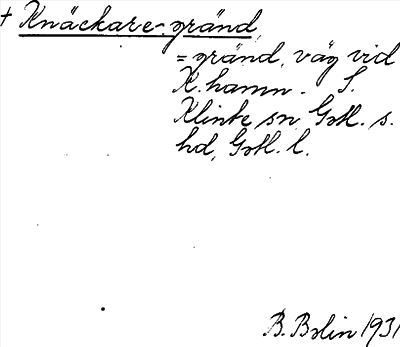 + Knäckare-gränd,
= gränd, väg vid
K. hamn. S.
Klinte sn Gotl. s.
hd, Gotl. l.
B. Bolin 1931